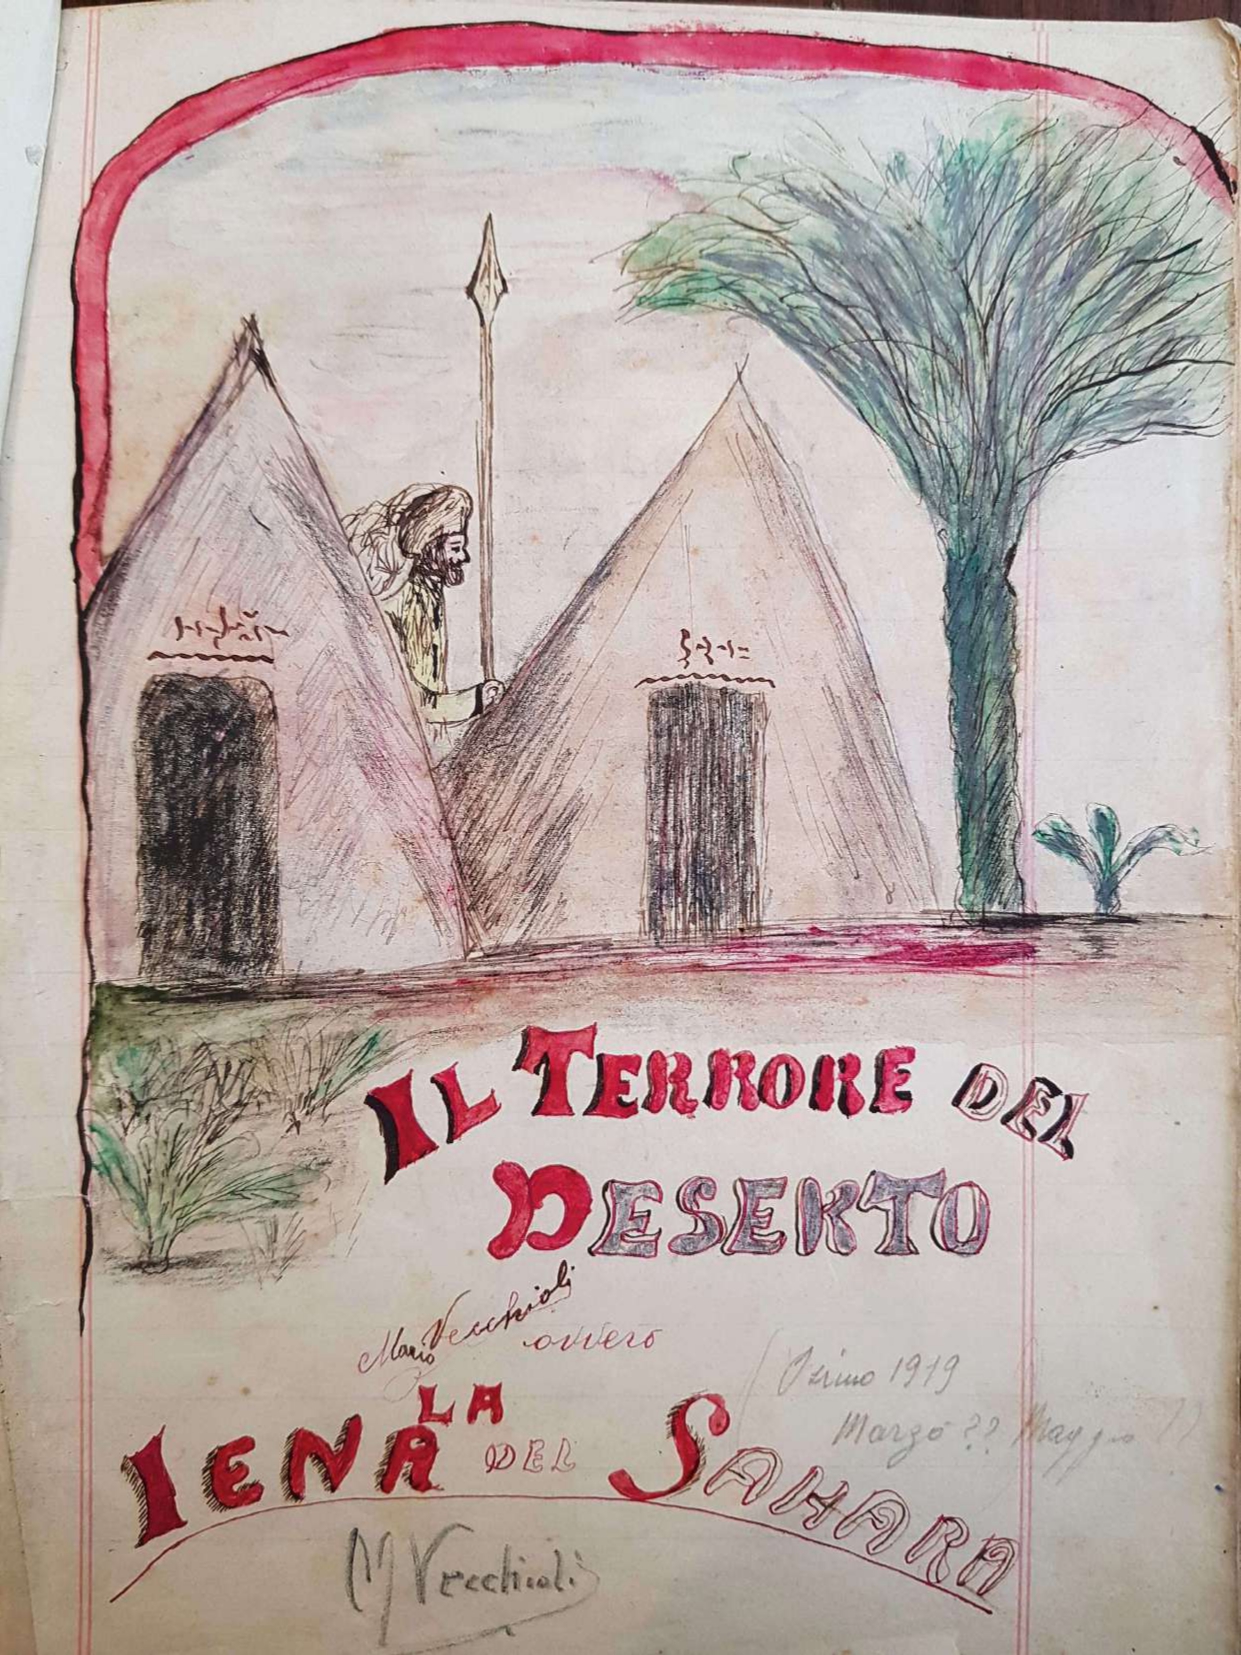 IL TERRORE DEL
DESERTO
Mario Vecchioli
ovvero
LA
IENA DEL SAHARA
Osimo 1919
Marzo ?? Maggio ??
M Vecchioli